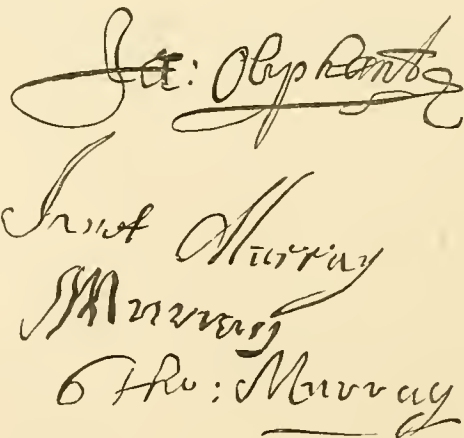 Ja: Olyphant
Murray
Murray
6 Tho: Murray